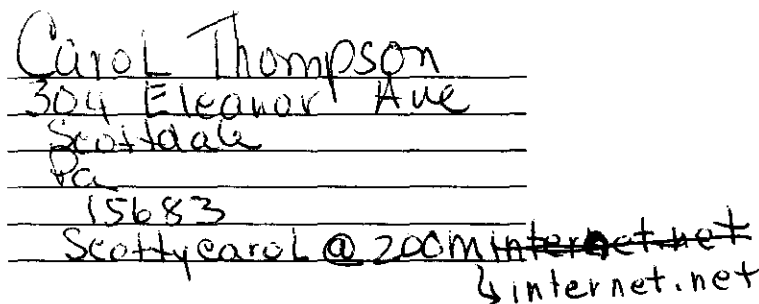 Carol Thompson
304 Eleanor Ave
Scottdale
Pa
15683
Scottycarol @ zoominternet.net
internet.net